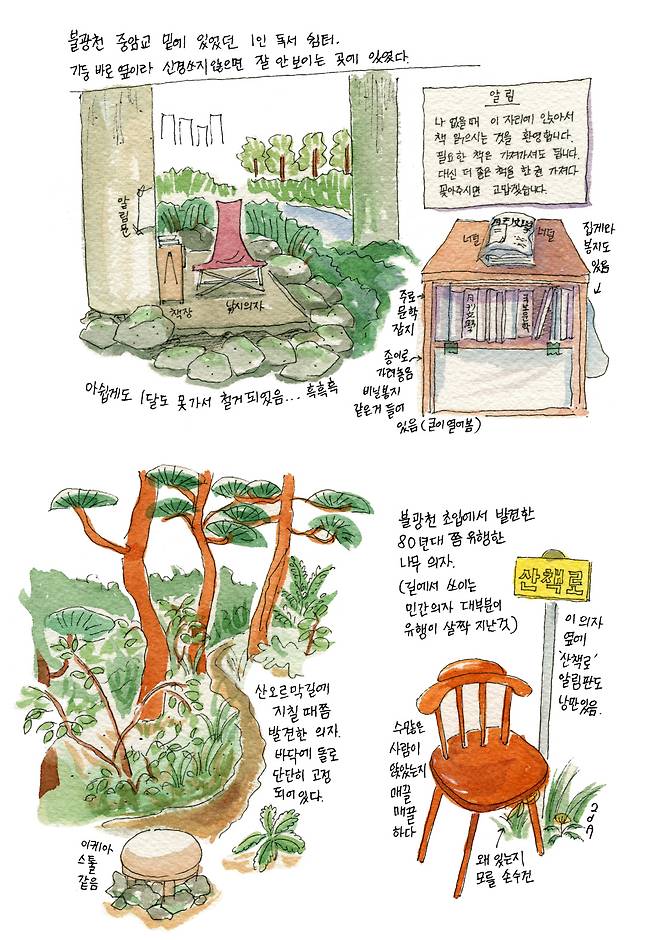 불광천 중암교 밑에 있었던 1인 독서 쉼터.
기둥 바로 옆이라 신경쓰지 않으면 잘 안 보이는 곳에 있었다.
알림판
책장
낚시의자
아쉽게도 1달도 못가서 철거되었음... 흑흑흑
알림
나 없을때 이 자리에 앉아서
책 읽으시는 것을 환영합니다.
필요한 책은 가져가셔도 됩니다.
대신 더 좋은 책을 한 권 가져다
꽂아주시면 고맙겠습니다.
너덜
너덜
집게랑
봉지도
있음
주로
문학
잡지
종이로
가려놓음
비닐봉지
같은거 들어
있음 (굳이 열어봄)
산오르막길에
지칠 때쯤
발견한 의자.
바닥에 돌로
단단히 고정
되어있다.
이케아
스툴
같음
불광천 초입에서 발견한
80년대 쯤 유행한
나무 의자.
(길에서 쓰이는
민간의자 대부분이
유행이 살짝 지난것)
산책로
이 의자
옆에
'산책로'
알림판도
낭만있음.
수많은
사람이
앉았는지
매끌
매끌
하다
왜 있는지
모를 손수건